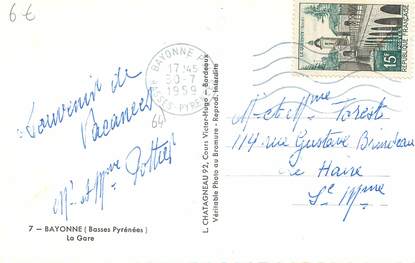 6€
BAYONNE
17H45
30-7
1959
BASSES-PYRENEES
15F
64
Souvenir de
Vacances
Mr et Mme Pottier
7 — BAYONNE ( Basses Pyrénées )
La Gare
L. CHATAGNEAU 92, Cours Victor-Hugo — Bordeaux
Véritable Photo au Bromure - Reprod. Interdite
Mr et Mme
114 rue Gustave Brindeau
Le Havre
Se Mme